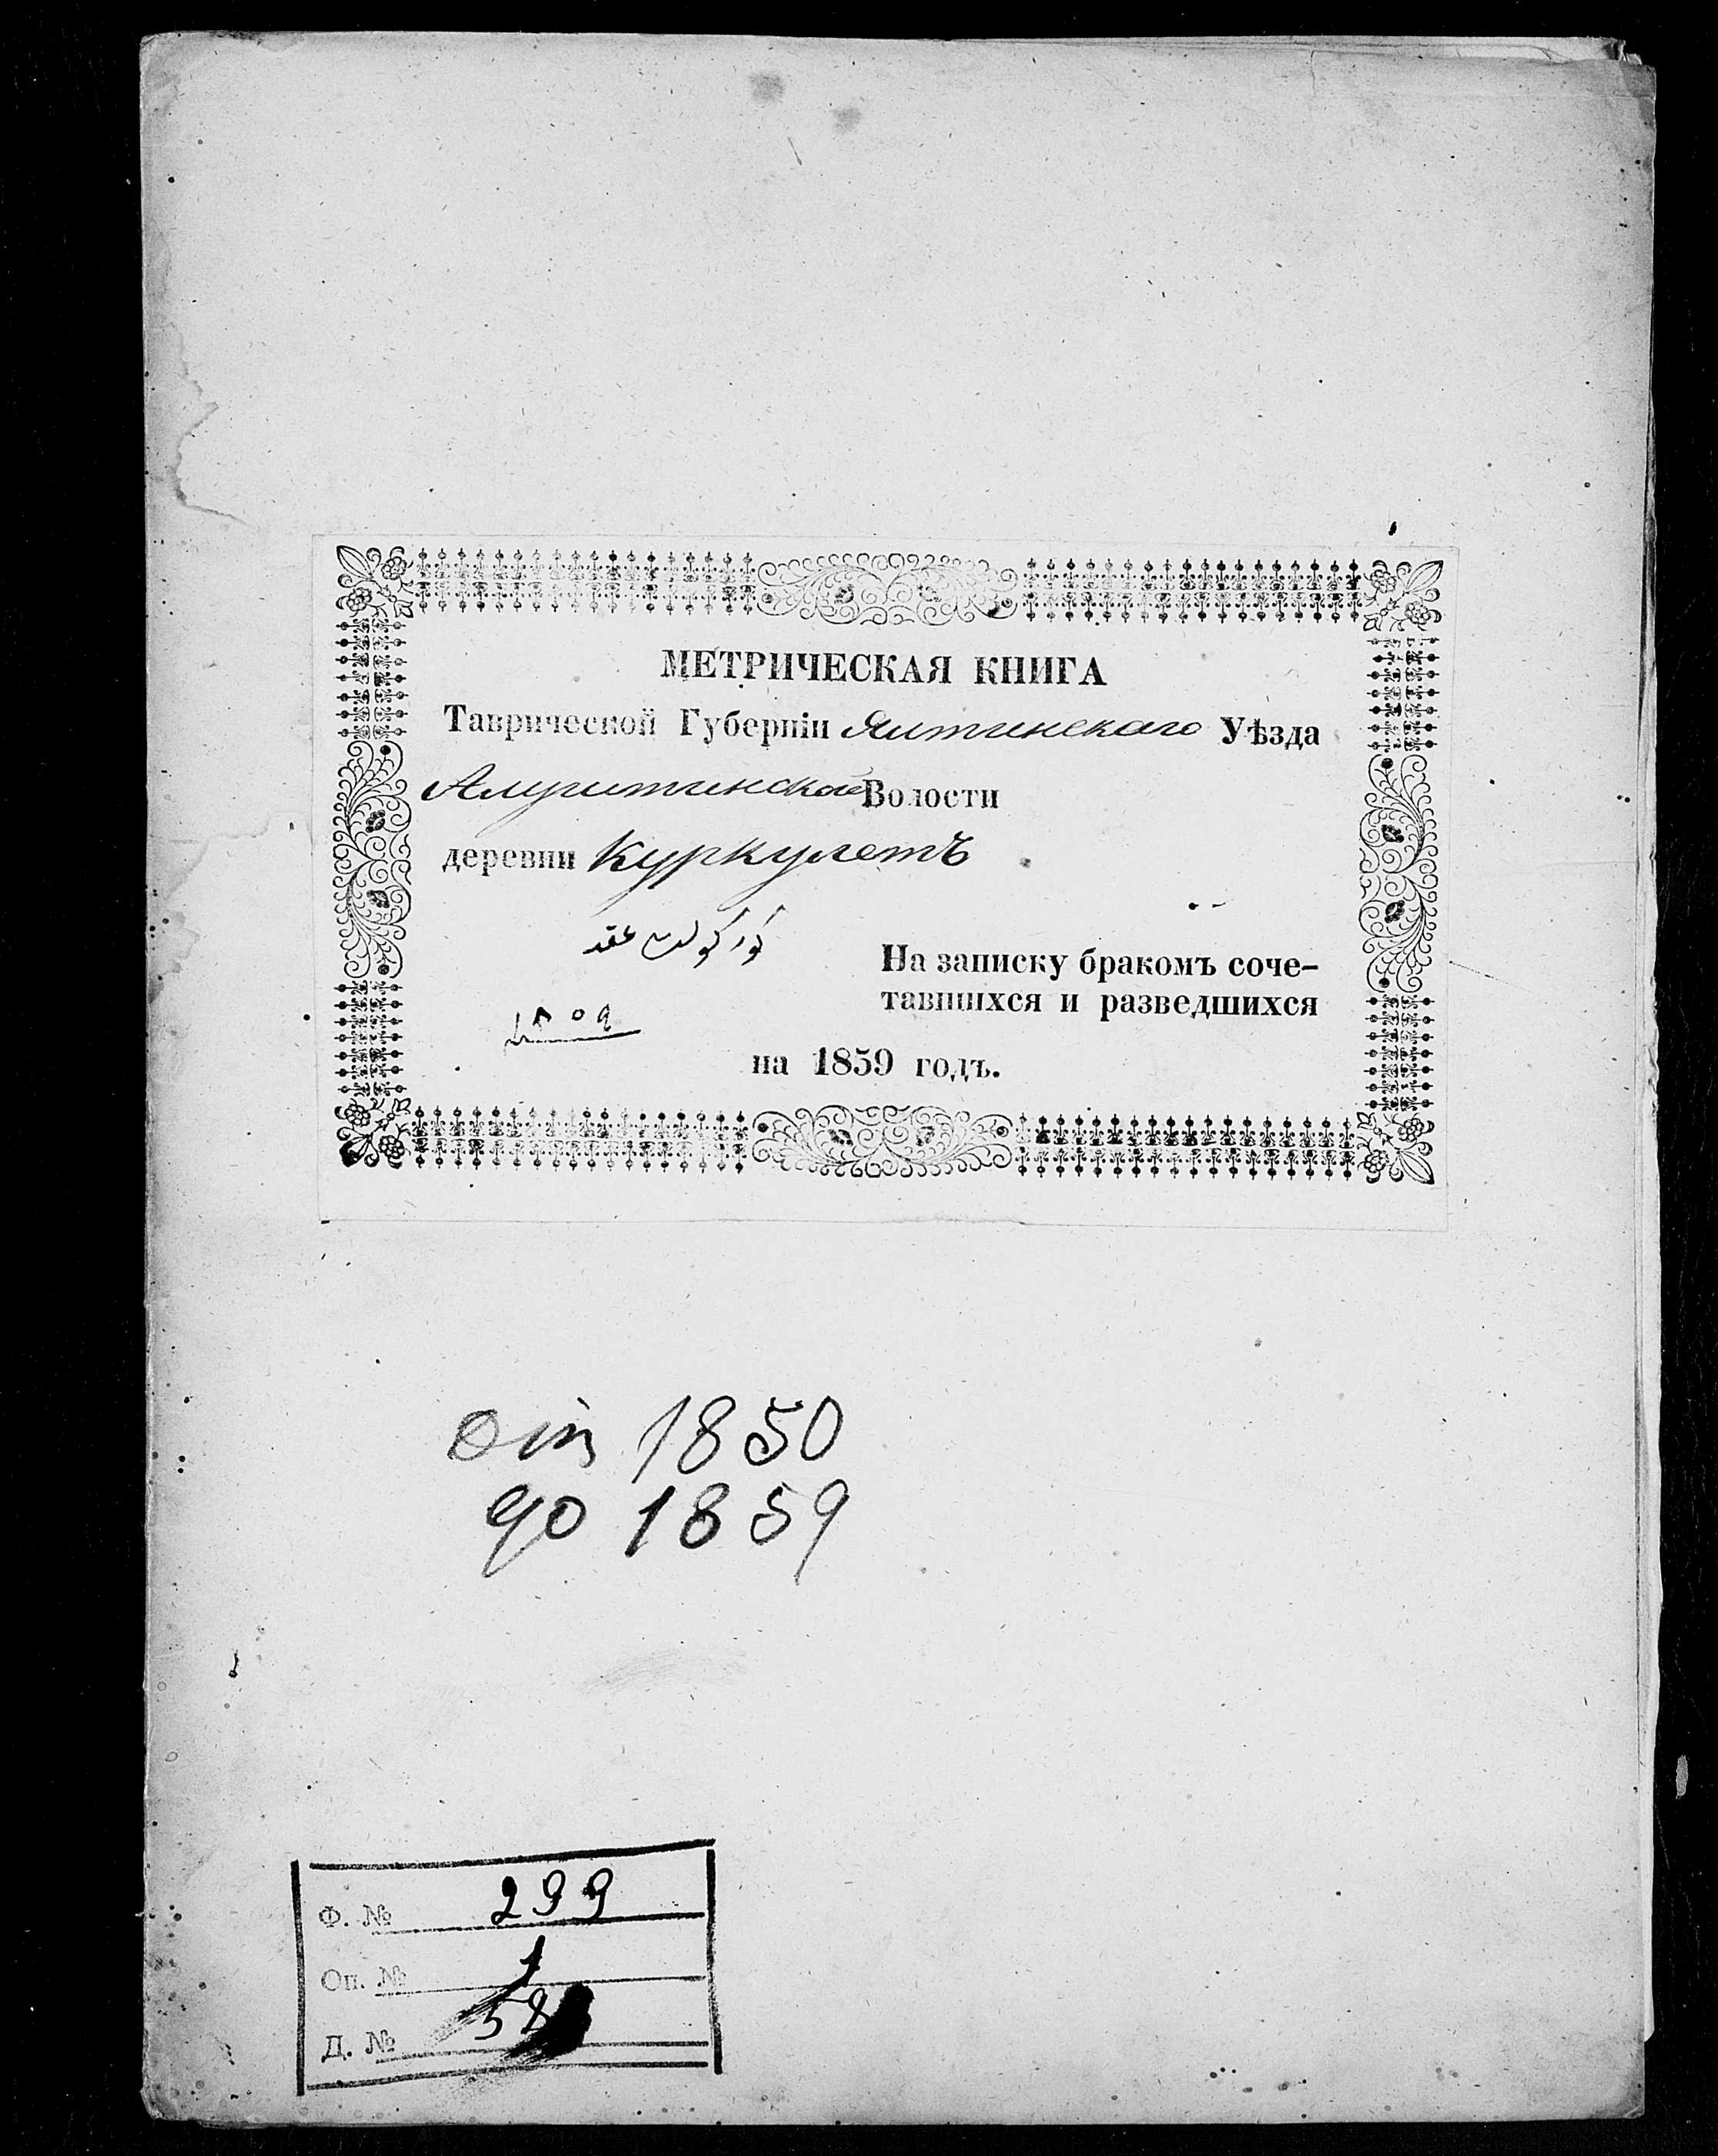 МЕТРИЧЕСКАЯ КНИГА
Таврической Губерніи Ялтинскаго Уѣзда
Алуштинской Волости
деревни Куркулетъ
كوركولت عقد
На записку бракомъ соче-
тавшихся и разведшихся
١٨٥٩
на 1859 годъ.
от 1850
до 1859
Ф. № 299
Оп. № 1
Д. № 58